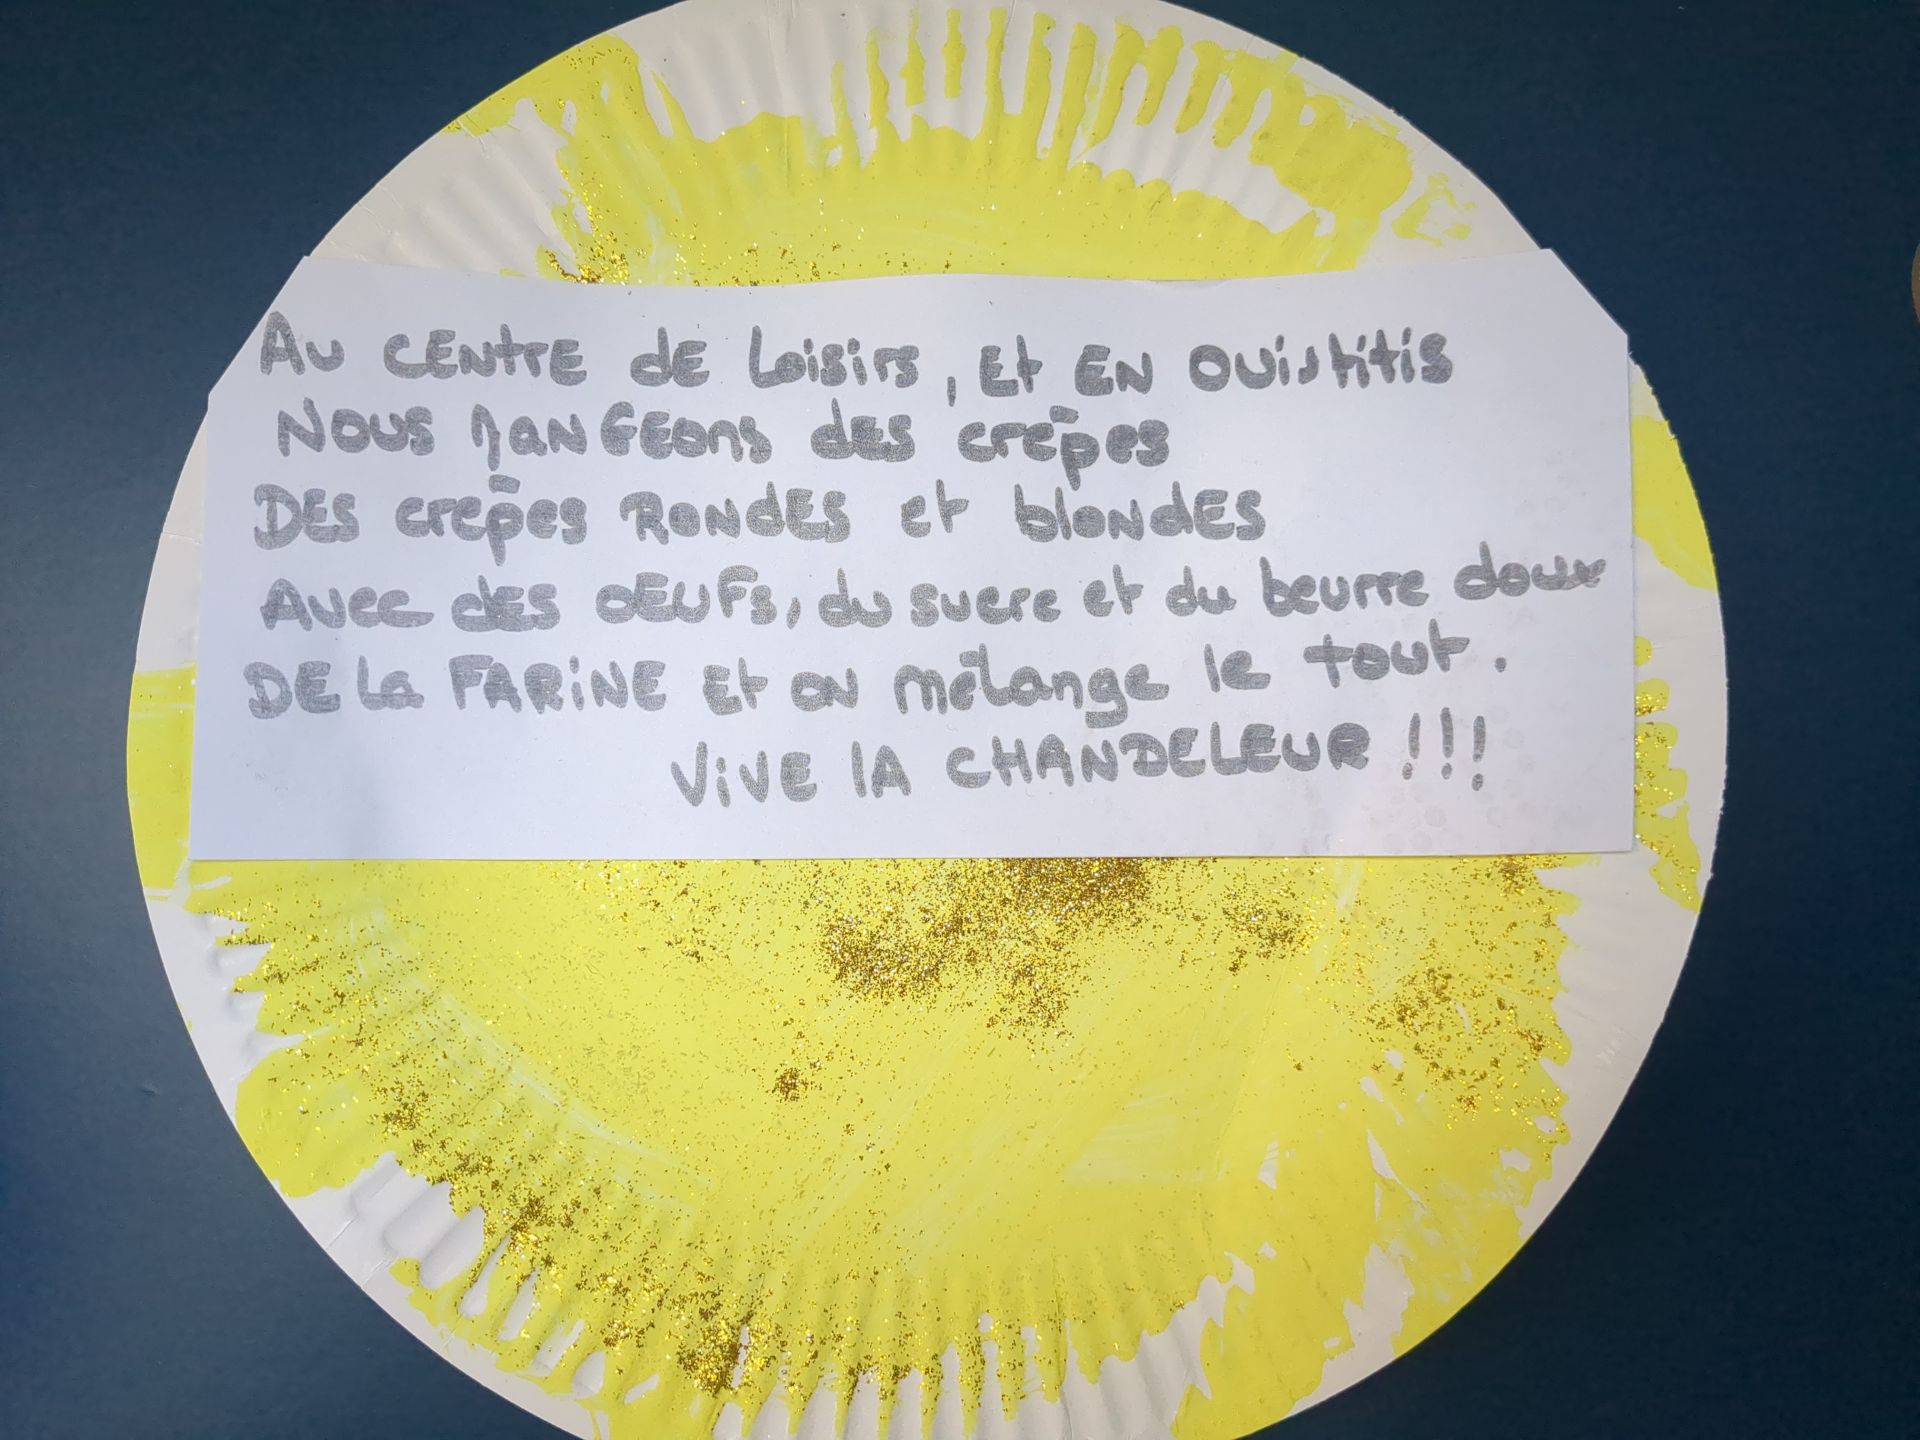 Au CENTRE de Loisirs, Et EN OUistitis
NOUS MANGEONS des crêpes
DES crêpes RONDES et blondes
Avec des OEUFs, du sucre et du beurre doux
DE La FARINE Et ON mélange le tout.
VIVE LA CHANDELEUR !!!